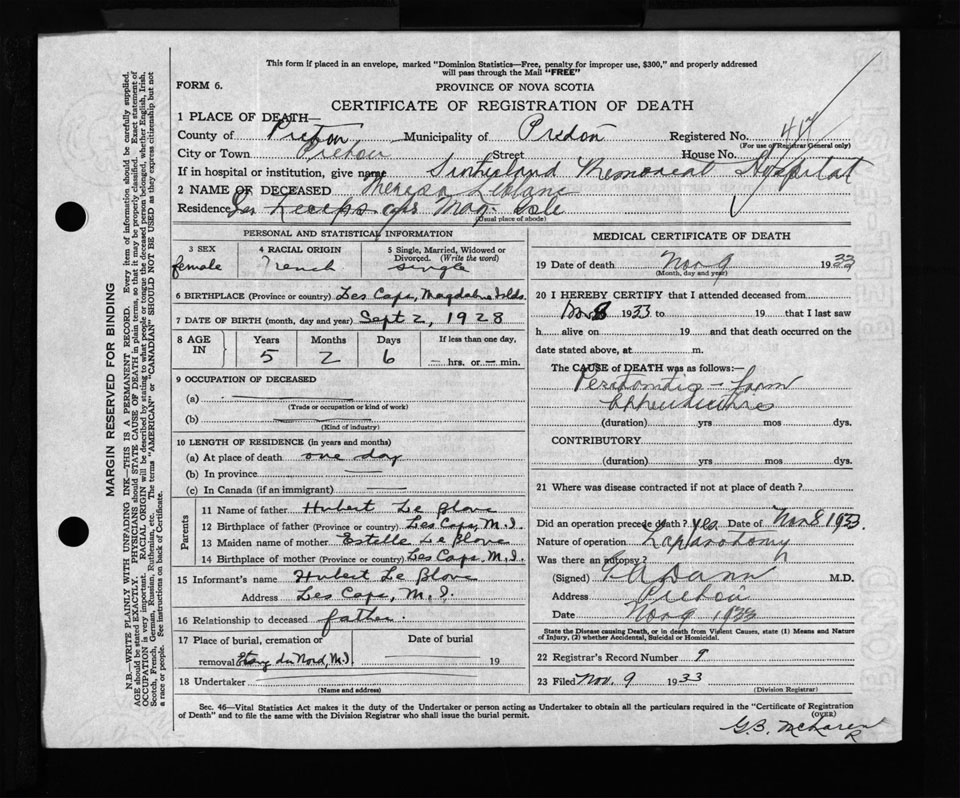 This form if placed in an envelope, marked "Dominion Statistics—Free, penalty for improper use, $300," and properly addressed
will pass through the Mail "FREE"
FORM 6.
PROVINCE OF NOVA SCOTIA
CERTIFICATE OF REGISTRATION OF DEATH
1 PLACE OF DEATH—
County of Pictou Municipality of Pictou Registered No.
(For use of Registrar General only)
City or Town Pictou Street House No.
If in hospital or institution, give name Sutherland Memorial Hospital
2 NAME OF DECEASED Theresa Leblanc
Residence Les Caps Mag. Isle
(Usual place of abode)
PERSONAL AND STATISTICAL INFORMATION
3 SEX 4 RACIAL ORIGIN 5 Single, Married, Widowed or Divorced. (Write the word)
female French single
6 BIRTHPLACE (Province or country) Les Caps, Magdalene Islds.
7 DATE OF BIRTH (month, day and year) Sept 2, 1928
8 AGE IN Years Months Days If less than one day,
5 2 6 — hrs. or — min.
9 OCCUPATION OF DECEASED
(a)
(Trade or occupation or kind of work)
(b)
(Kind of industry)
10 LENGTH OF RESIDENCE (in years and months)
(a) At place of death one day
(b) In province —
(c) In Canada (if an immigrant) —
Parents
11 Name of father Hubert Le Blanc
12 Birthplace of father (Province or country) Les Caps, M.I.
13 Maiden name of mother Estelle Le Blanc
14 Birthplace of mother (Province or country) Les Caps, M.I.
15 Informant's name Hubert Le Blanc
Address Les Caps, M.I.
16 Relationship to deceased father.
17 Place of burial, cremation or Date of burial
removal Etang du Nord, M.I. 19
18 Undertaker
(Name and address)
MEDICAL CERTIFICATE OF DEATH
19 Date of death Nov 9 1933
(Month, day and year)
20 I HEREBY CERTIFY that I attended deceased from
Nov 8 1933 to 19 that I last saw
h alive on 19 and that death occurred on the
date stated above, at m.
The CAUSE of DEATH was as follows:—
Peritonitis – from
appendicitis
(duration) yrs mos dys.
CONTRIBUTORY
(duration) yrs mos dys.
21 Where was disease contracted if not at place of death?
Did an operation precede death? yes Date of Nov 8 1933.
Nature of operation Laparotomy
Was there an autopsy?
(Signed) Dann M.D.
Address Pictou
Date Nov 9 1933
State the Disease causing Death, or in death from Violent Causes, state (1) Means and Nature
of Injury, (2) whether Accidental, Suicidal or Homicidal.
22 Registrar's Record Number 9
23 Filed Nov. 9 1933
(Division Registrar)
Sec. 46—Vital Statistics Act makes it the duty of the Undertaker or person acting as Undertaker to obtain all the particulars required in the "Certificate of Registration
of Death" and to file the same with the Division Registrar who shall issue the burial permit.
(OVER)
G.B. McLaren
MARGIN RESERVED FOR BINDING
N.B.—WRITE PLAINLY WITH UNFADING INK—THIS IS A PERMANENT RECORD. Every item of information should be carefully supplied.
AGE should be stated EXACTLY. PHYSICIANS should STATE CAUSE OF DEATH in plain terms, so that it may be properly classified. Exact statement of
OCCUPATION is very important. RACIAL ORIGIN will be described by stating to what people or tongue the deceased person belonged, whether English, Irish,
Scotch, French, German, Russian, Ruthenian, etc. The terms "AMERICAN" or "CANADIAN" SHOULD NOT BE USED as they express citizenship but not
a race or people. See instructions on back of Certificate.